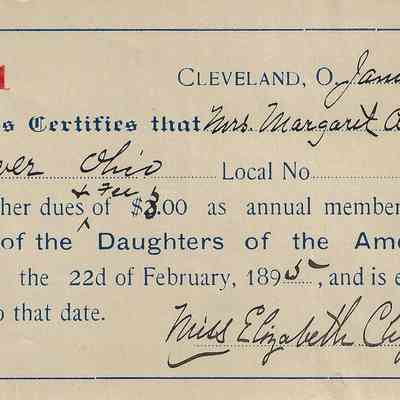 1 CLEVELAND, O. Janu
s Certifies that Mrs. Margaret
ver Ohio Local No
& Fee
her dues ^ of $3.00 as annual member
of the Daughters of the Ame
the 22d of February, 1895, and is e
o that date.
Miss Elizabeth Cly